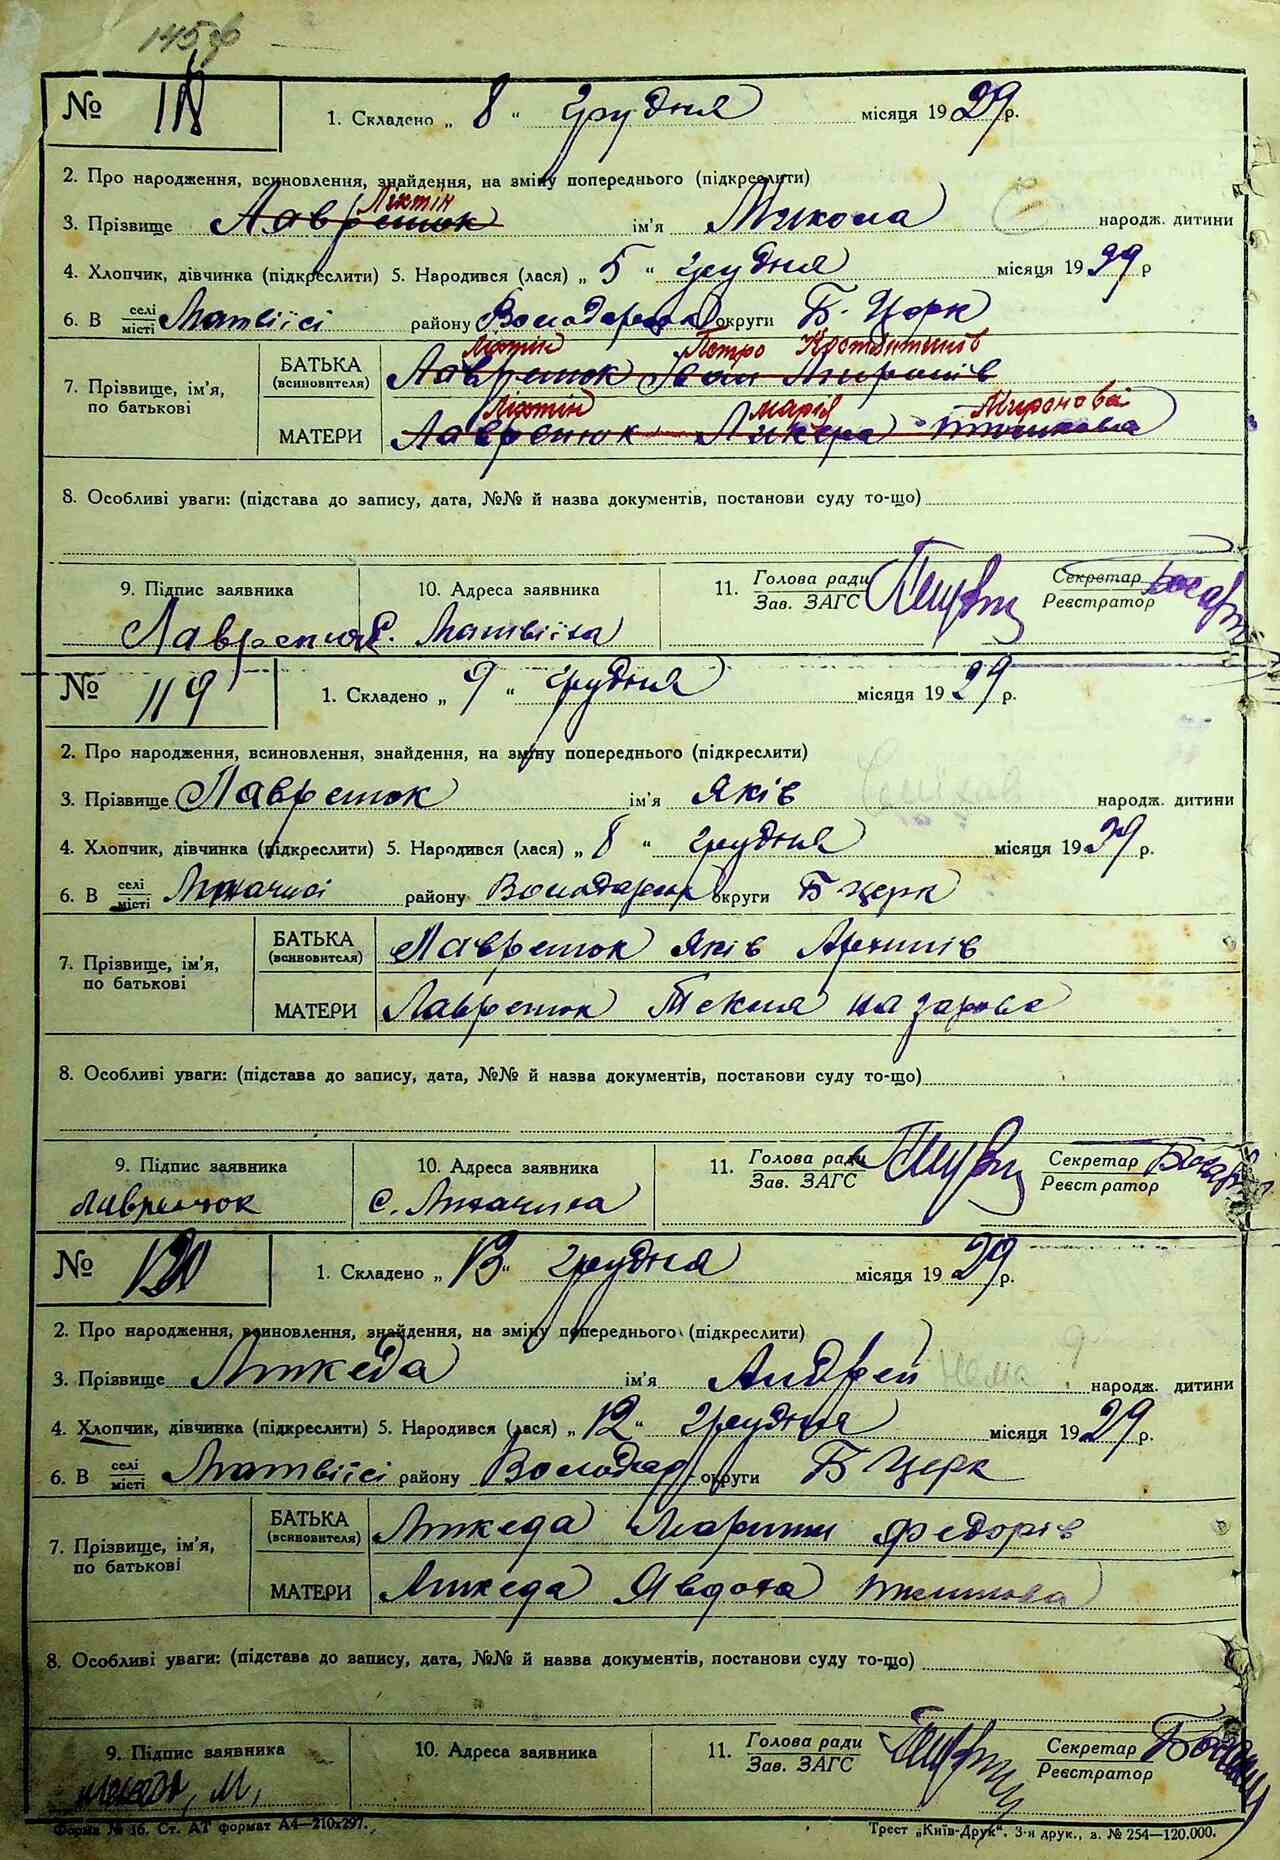 145
№ 118 1. Складено „ 8 “ грудня місяця 1929 р.
2. Про народження, всиновлення, знайдення, на зміну попереднього (підкреслити)
Ліхтін
3. Прізвище Лавренюк ім'я Микола народж. дитини
4. Хлопчик, дівчинка (підкреслити) 5. Народився (лася) „ 5 “ грудня місяця 1929 р
6. В селі/місті Матвіїсі району Володарськ округи Б. Церк
Ліхтін Петро
7. Прізвище, ім'я, по батькові БАТЬКА (всиновителя) Лавренюк Іван Миронів
Ліхтін марія Миронова
МАТЕРИ Лавренюк Ликера
8. Особливі уваги: (підстава до запису, дата, №№ й назва документів, постанови суду то-що)
9. Підпис заявника 10. Адреса заявника 11. Голова ради Зав. ЗАГС Секретар Реєстратор
Лавренюк С. Матвіїха
№ 119 1. Складено „ 9 “ грудня місяця 1929 р.
2. Про народження, всиновлення, знайдення, на зміну попереднього (підкреслити)
3. Прізвище Лавренюк ім'я Яків народж. дитини
4. Хлопчик, дівчинка (підкреслити) 5. Народився (лася) „ 8 “ грудня місяця 1929 р.
6. В селі/місті району Володарськ округи Б церк
7. Прізвище, ім'я, по батькові БАТЬКА (всиновителя) Лавренюк Яків Архипів
МАТЕРИ Лавренюк Текля Назарова
8. Особливі уваги: (підстава до запису, дата, №№ й назва документів, постанови суду то-що)
9. Підпис заявника 10. Адреса заявника 11. Голова ради Зав. ЗАГС Секретар Реєстратор
Лавренюк с.
№ 120 1. Складено „ 13 “ грудня місяця 1929 р.
2. Про народження, всиновлення, знайдення, на зміну попереднього (підкреслити)
3. Прізвище ім'я Андрей нема народж. дитини
4. Хлопчик, дівчинка (підкреслити) 5. Народився (лася) „ 12 “ грудня місяця 1929 р.
6. В селі/місті Матвіїсі району Володар округи Б Церк
7. Прізвище, ім'я, по батькові БАТЬКА (всиновителя) Федорів
МАТЕРИ Явдоха
8. Особливі уваги: (підстава до запису, дата, №№ й назва документів, постанови суду то-що)
9. Підпис заявника 10. Адреса заявника 11. Голова ради Зав. ЗАГС Секретар Реєстратор
М.
Форма № 16. Ст. АТ формат А4—210x297. Трест „Київ-Друк“. 3-я друк., з. № 254—120.000.